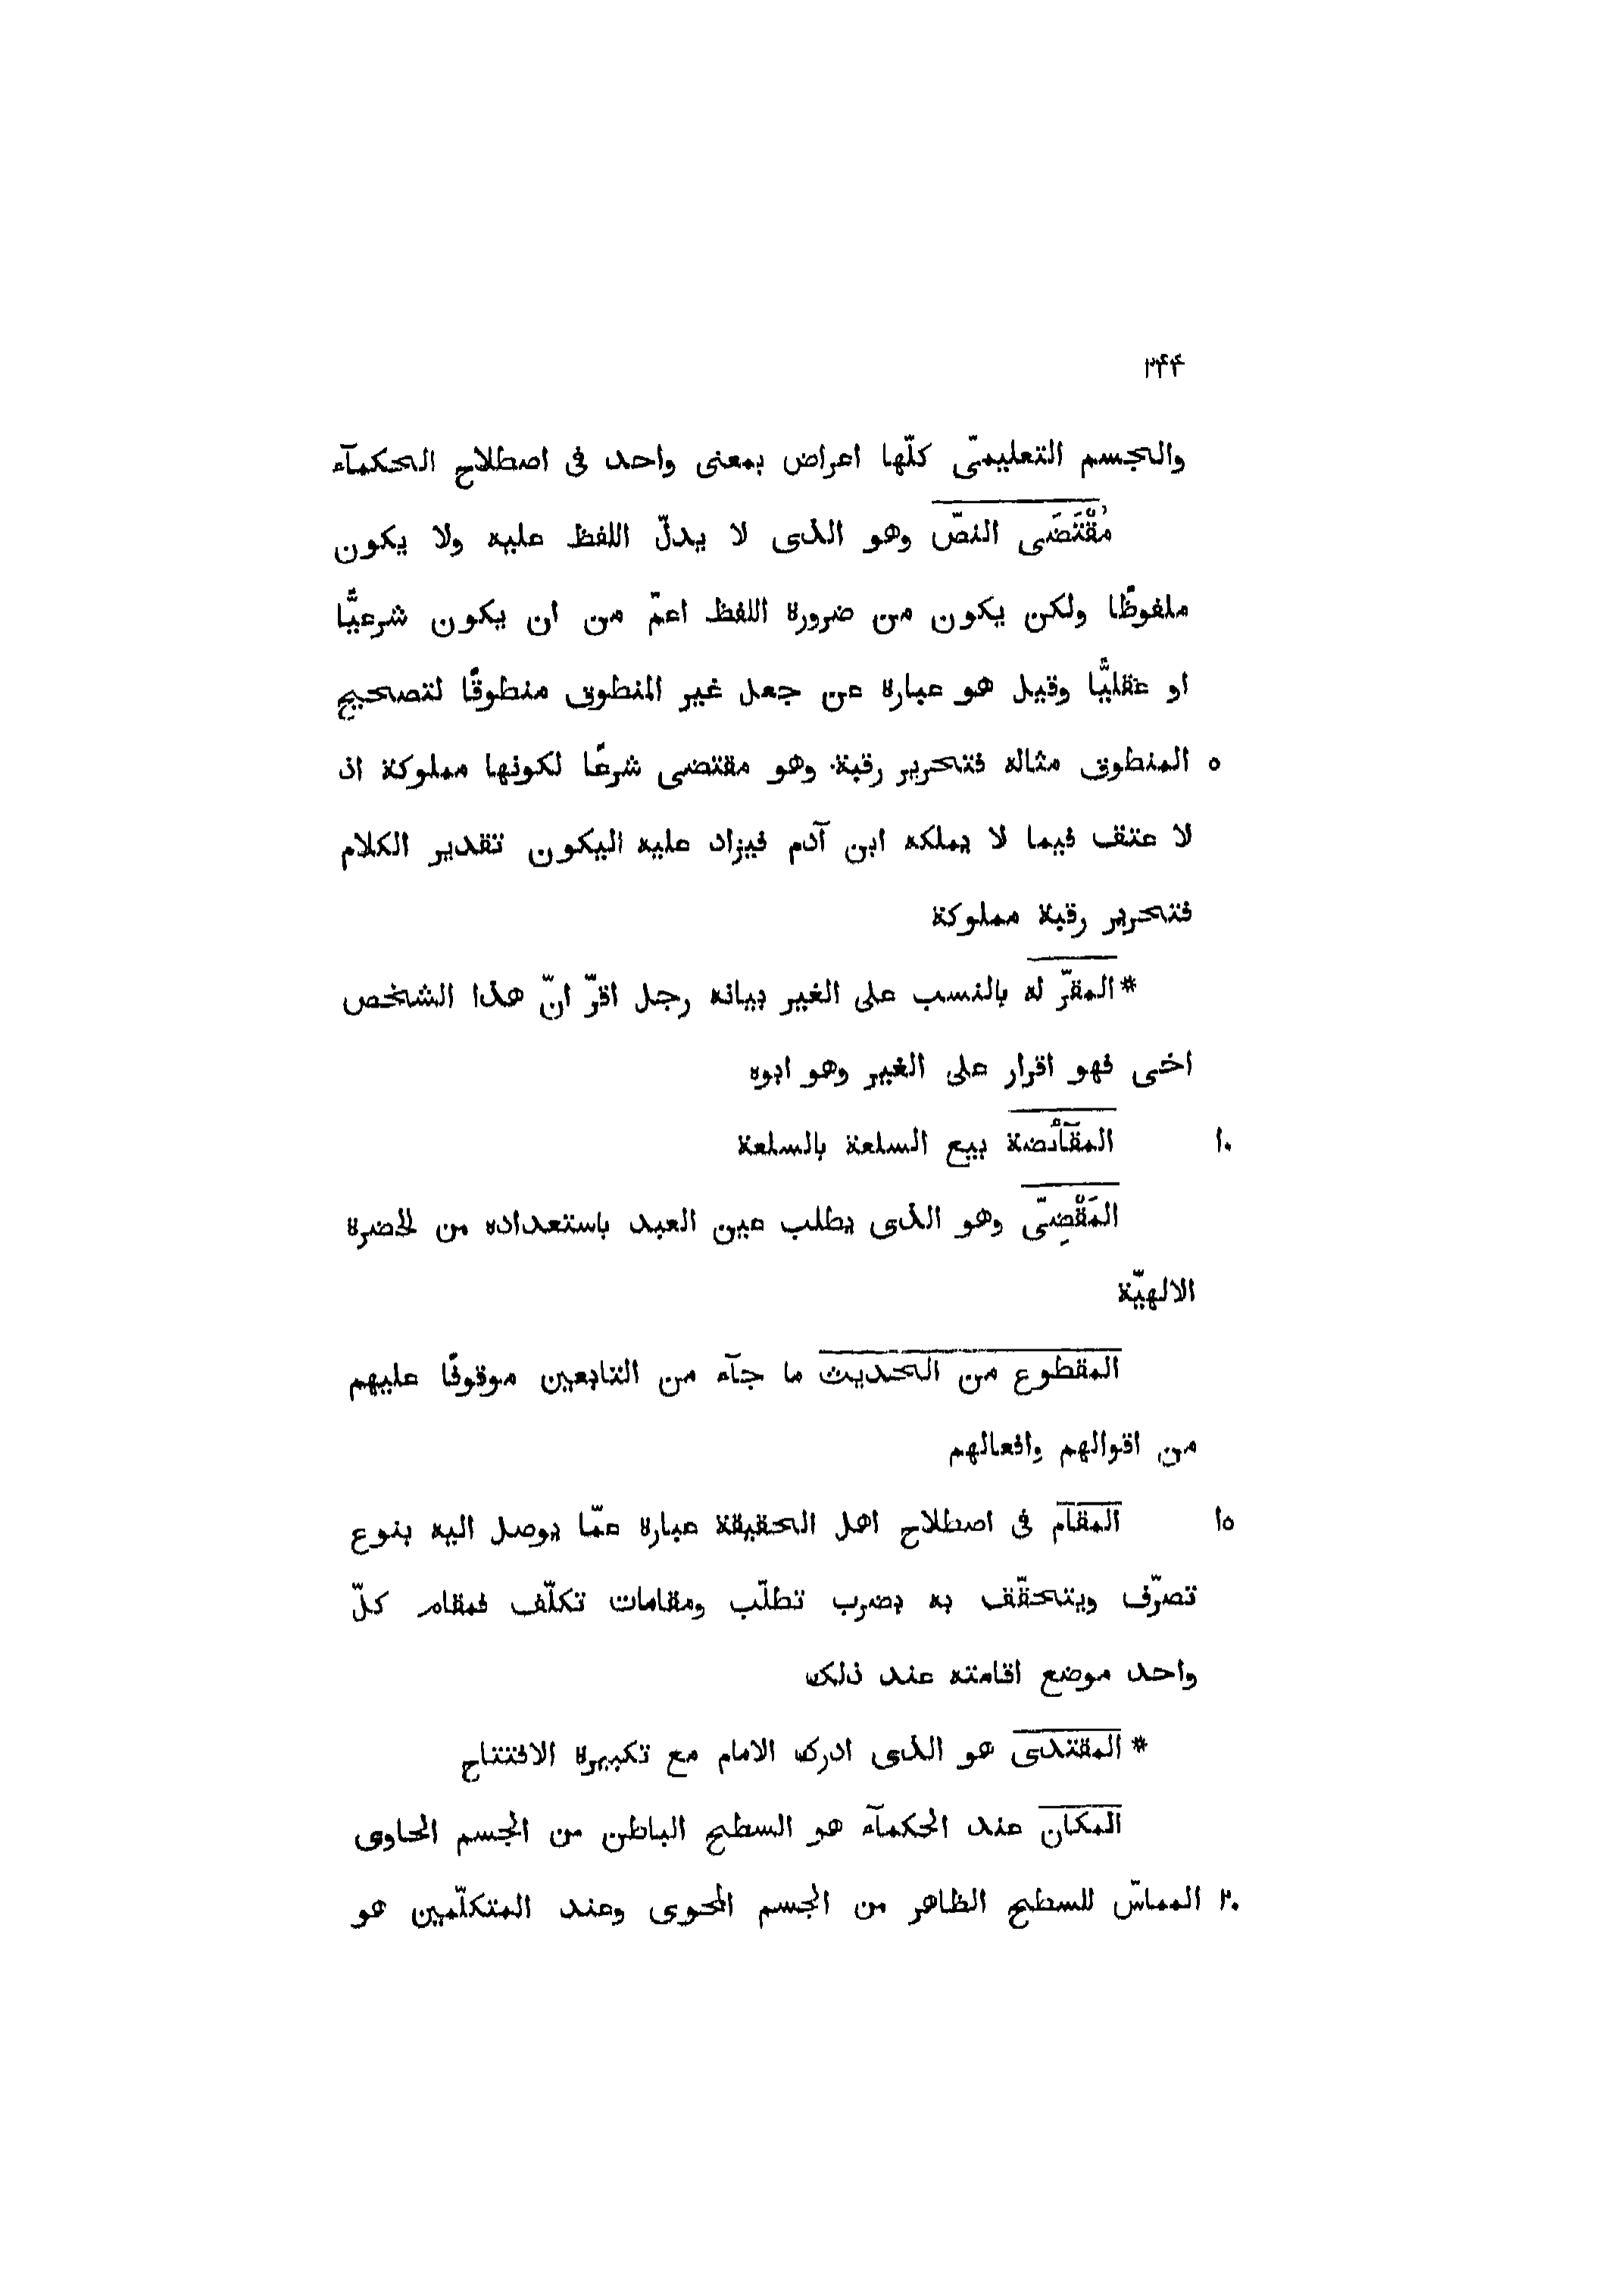 ٢٤٤
والجسم التعليمىّ كلّها اعراض بمعنى واحد فى اصطلاح الحكمآء
مُقْتَضَى النصّ وهو الذى لا يدلّ اللفظ عليه ولا يكون
ملفوظًا ولكن يكون من ضرورة اللفظ اعمّ من ان يكون شرعيًّا
او عقليًّا وقيل هو عبارة عن جعل غير المنطوق منطوقًا لتصحيح
٥ المنطوق مثاله فتحرير رقبة وهو مقتضى شرعًا لكونها مملوكة اذ
لا عتق فيما لا يملكه ابن آدم فيزاد عليه اليكون تقدير الكلام
فتحرير رقبة مملوكة
* المقرّ له بالنسب على الغير بيانه رجل اقرّ انّ هذا الشخص
اخى فهو اقرار على الغير وهو ابوه
١٠ المقآئضة بيع السلعة بالسلعة
المَقْضِىّ وهو الذى يطلب عين العبد باستعداده من لحضرة
الالهيّة
المقطوع من الحديث ما جآء من التابعين موقوفًا عليهم
من اقوالهم وافعالهم
١٥ المقام فى اصطلاح اهل الحقيقة عبارة عمّا يوصل اليه بنوع
تصرّف ويتحقّق به بضرب تطلّب ومقامات تكلّف فمقام كلّ
واحد موضع اقامته عند ذلك
* المقتدى هو الذى ادرك الامام مع تكبيرة الافتتاح
المكان عند الحكمآء هو السطح الباطن من الجسم الحاوى
٢٠ المماسّ للسطح الظاهر من الجسم المحوى وعند المتكلّمين هو